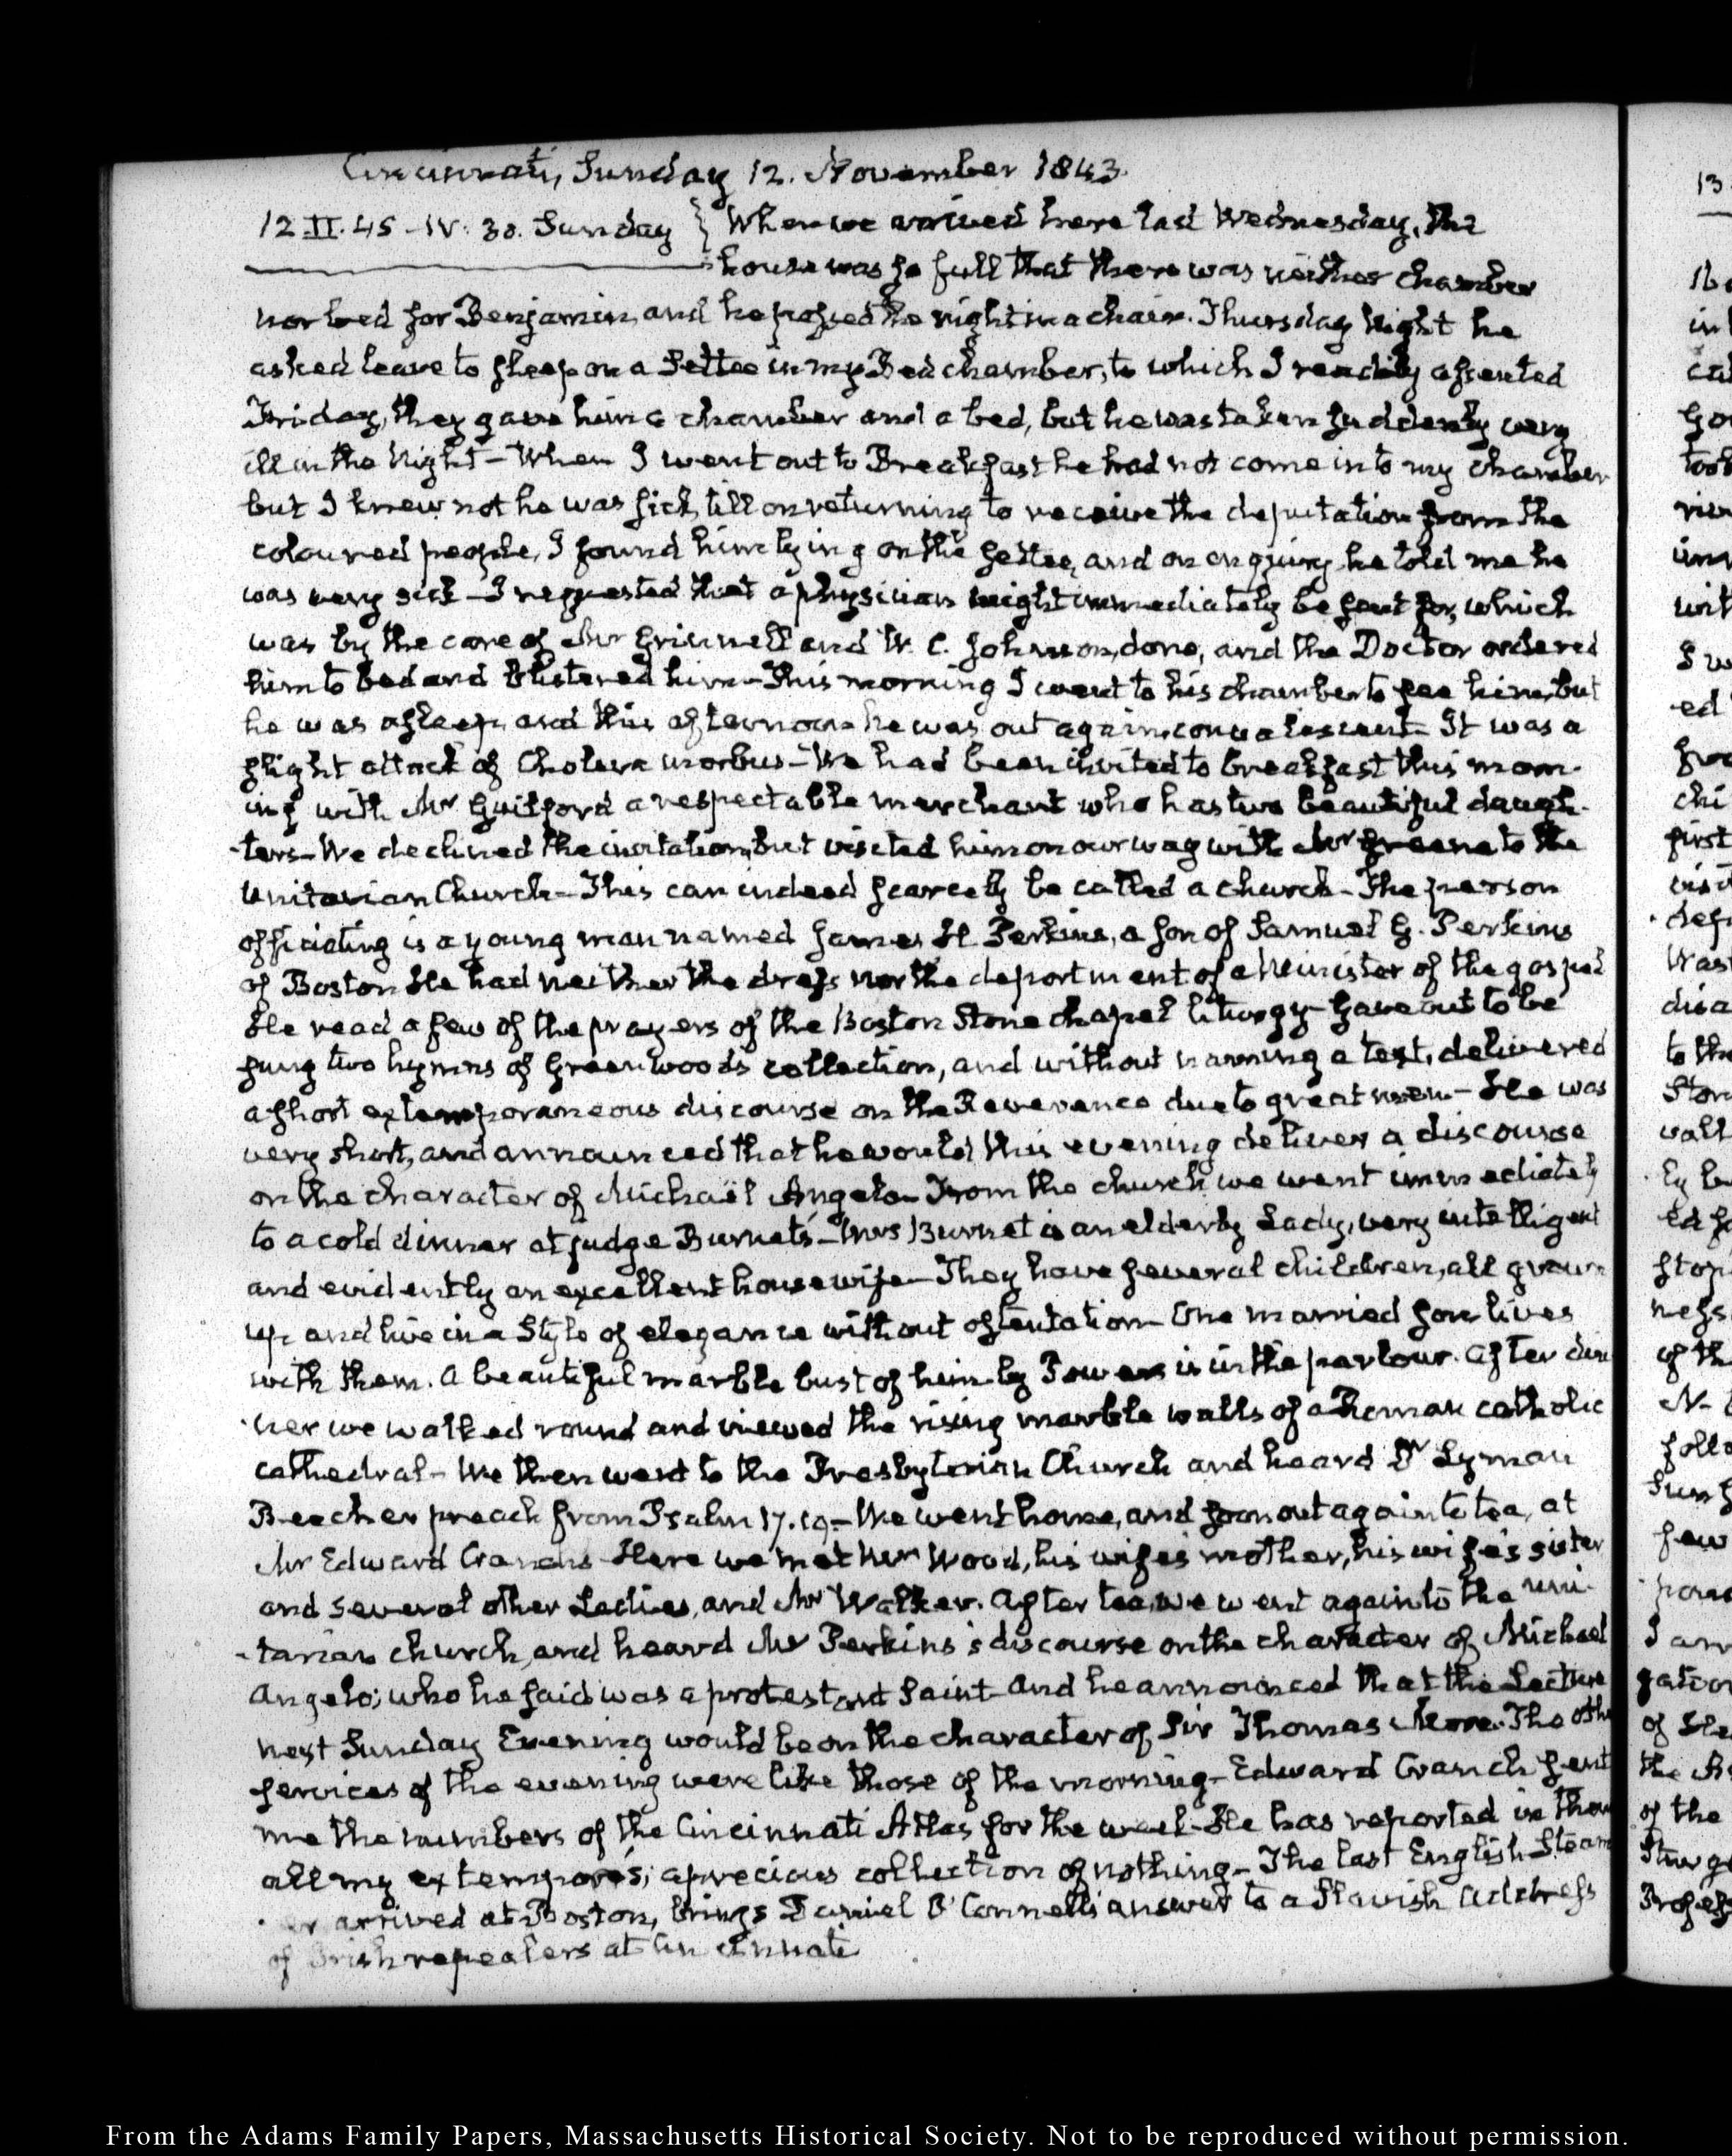 Cincinnati, Sunday 12. November 1843.
12 II. 45 - IV: 30. Sunday } When we arrived here last Wednesday, the
house was so full that there was neither chamber
nor bed for Benjamin, and he passed the night in a chair. Thursday Night he
asked leave to sleep on a Settee in my Bed chamber, to which I readily assented
Friday, they gave him a chamber and a bed, but he was taken suddenly very
ill in the Night - When I went out to Breakfast he had not come into my chamber
but I knew not he was sick, till on returning to receive the deputation from the
coloured people, I found him lying on the settee, and on enquiry he told me he
was very sick - I requested that a physician might immediately be sent for, which
was by the care of Mr Grinnell and W. C. Johnson, done, and the Doctor ordered
him to bed and blistered him - This morning I went to his chamber to see him, but
he was asleep, and this afternoon he was out again, convalescent - It was a
slight attack of Cholera morbus - We had been invited to breakfast this morn-
ing with Mr Guilford a respectable merchant who has two beautiful daugh-
-ters - We declined the invitation, but visited him on our way with Mr Greene to the
Unitarian Church - This can indeed scarcely be called a church - The person
officiating is a young man named James H Perkins, a son of Samuel G. Perkins
of Boston He had neither the dress nor the deportment of a Minister of the gospel
He read a few of the prayers of the Boston Stone chapel liturgy - Gave out to be
sung two hymns of Greenwood's collection, and without naming a text, delivered
a short extemporaneous discourse on the Reverence due to great men - He was
very short, and announced that he would this evening deliver a discourse
on the character of Michaël Angelo - From the church we went immediately
to a cold dinner at judge Burnet's - Mrs Burnet is an elderly Lady, very intelligent
and evidently an excellent housewife - They have several children, all grown
up, and live in a Style of elegance without ostentation - One married son lives
with them. A beautiful marble bust of him by Powers is in the parlour. After din
-ner we walked round and viewed the rising marble walls of a Roman catholic
cathedral - We then went to the Presbyterian Church and heard Dr Lyman
Beecher preach from Psalm 17.19. - We went home, and soon out again to tea, at
Mr Edward Cranch's Here we met Mrs Wood, his wife's mother, his wife's sister
and several other Ladies, and Mr Walker. After tea, we went again to the uni-
-tarian church, and heard Mr Perkins's discourse on the character of Michael
Angelo; who he said was a protestant Saint - And he announced that the Lecture
next Sunday Evening would be on the character of Sir Thomas More. The othe
services of the evening were like those of the morning - Edward Cranch sent
me the numbers of the Cincinnati Atlas for the week - He has reported in them
all my extempore's; a precious collection of nothing - The last English Steam
-er arrived at Boston, brings Daniel O'Connell's answer to a Slavish Address
of Irish repealers at Cincinnati
13
in
of the
From the Adams Family Papers, Massachusetts Historical Society. Not to be reproduced without permission.